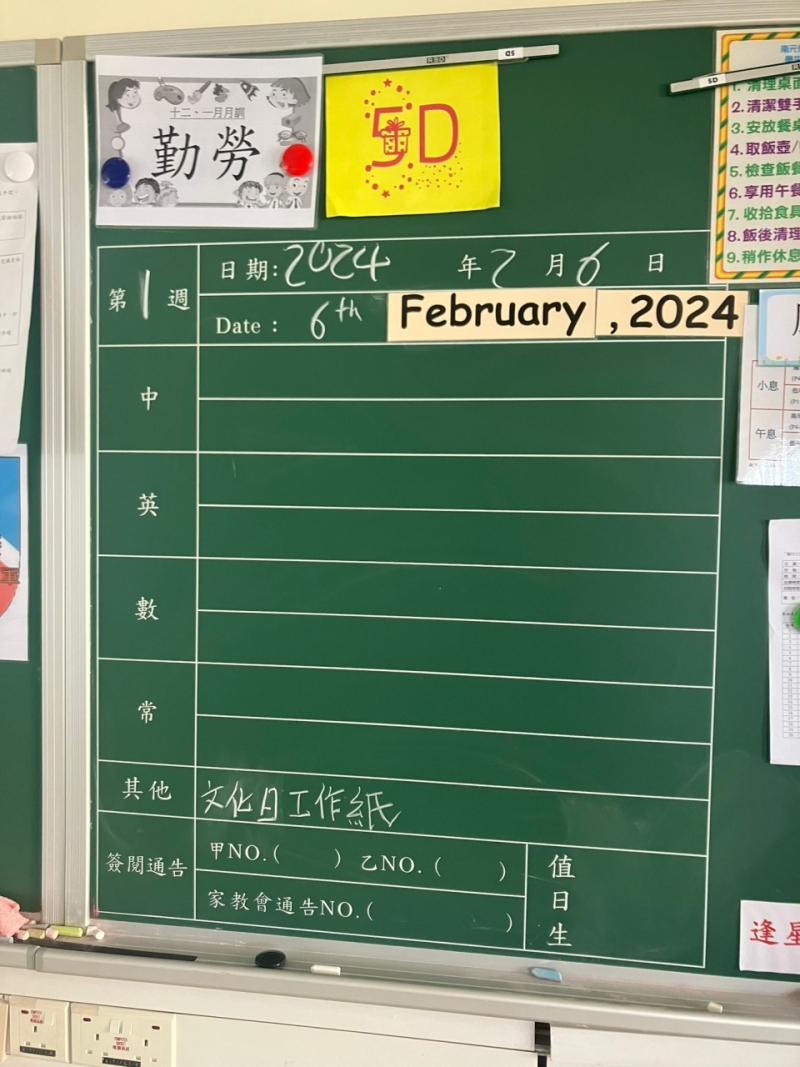 十二、一月月訓
勤勞
RSD
5D
5D
5D
1. 清理桌面
2. 清潔雙手
3. 安放餐桌
4. 取飯壺/
5. 檢查飯餐
6. 享用午餐
7. 收拾食具
8. 飯後清理
9. 稍作休息
第1週
日期:2024 年2月6日
Date : 6th February , 2024
小息
午息
中
英
數
常
其他
文化日工作紙
簽閱通告
甲NO.( ) 乙NO.( )
家教會通告NO.( )
值日生
逢星